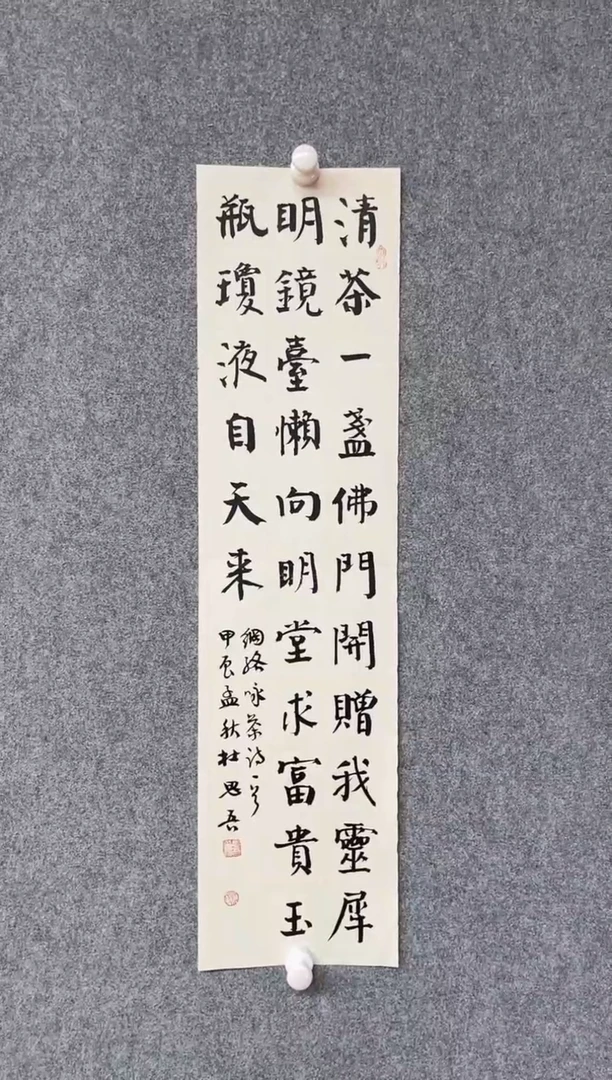 清茶一盞佛門開贈我靈犀
明鏡臺懶向明堂求富貴玉
瓶瓊液自天来
網絡咏茶诗一首
甲辰孟秋杜思吾